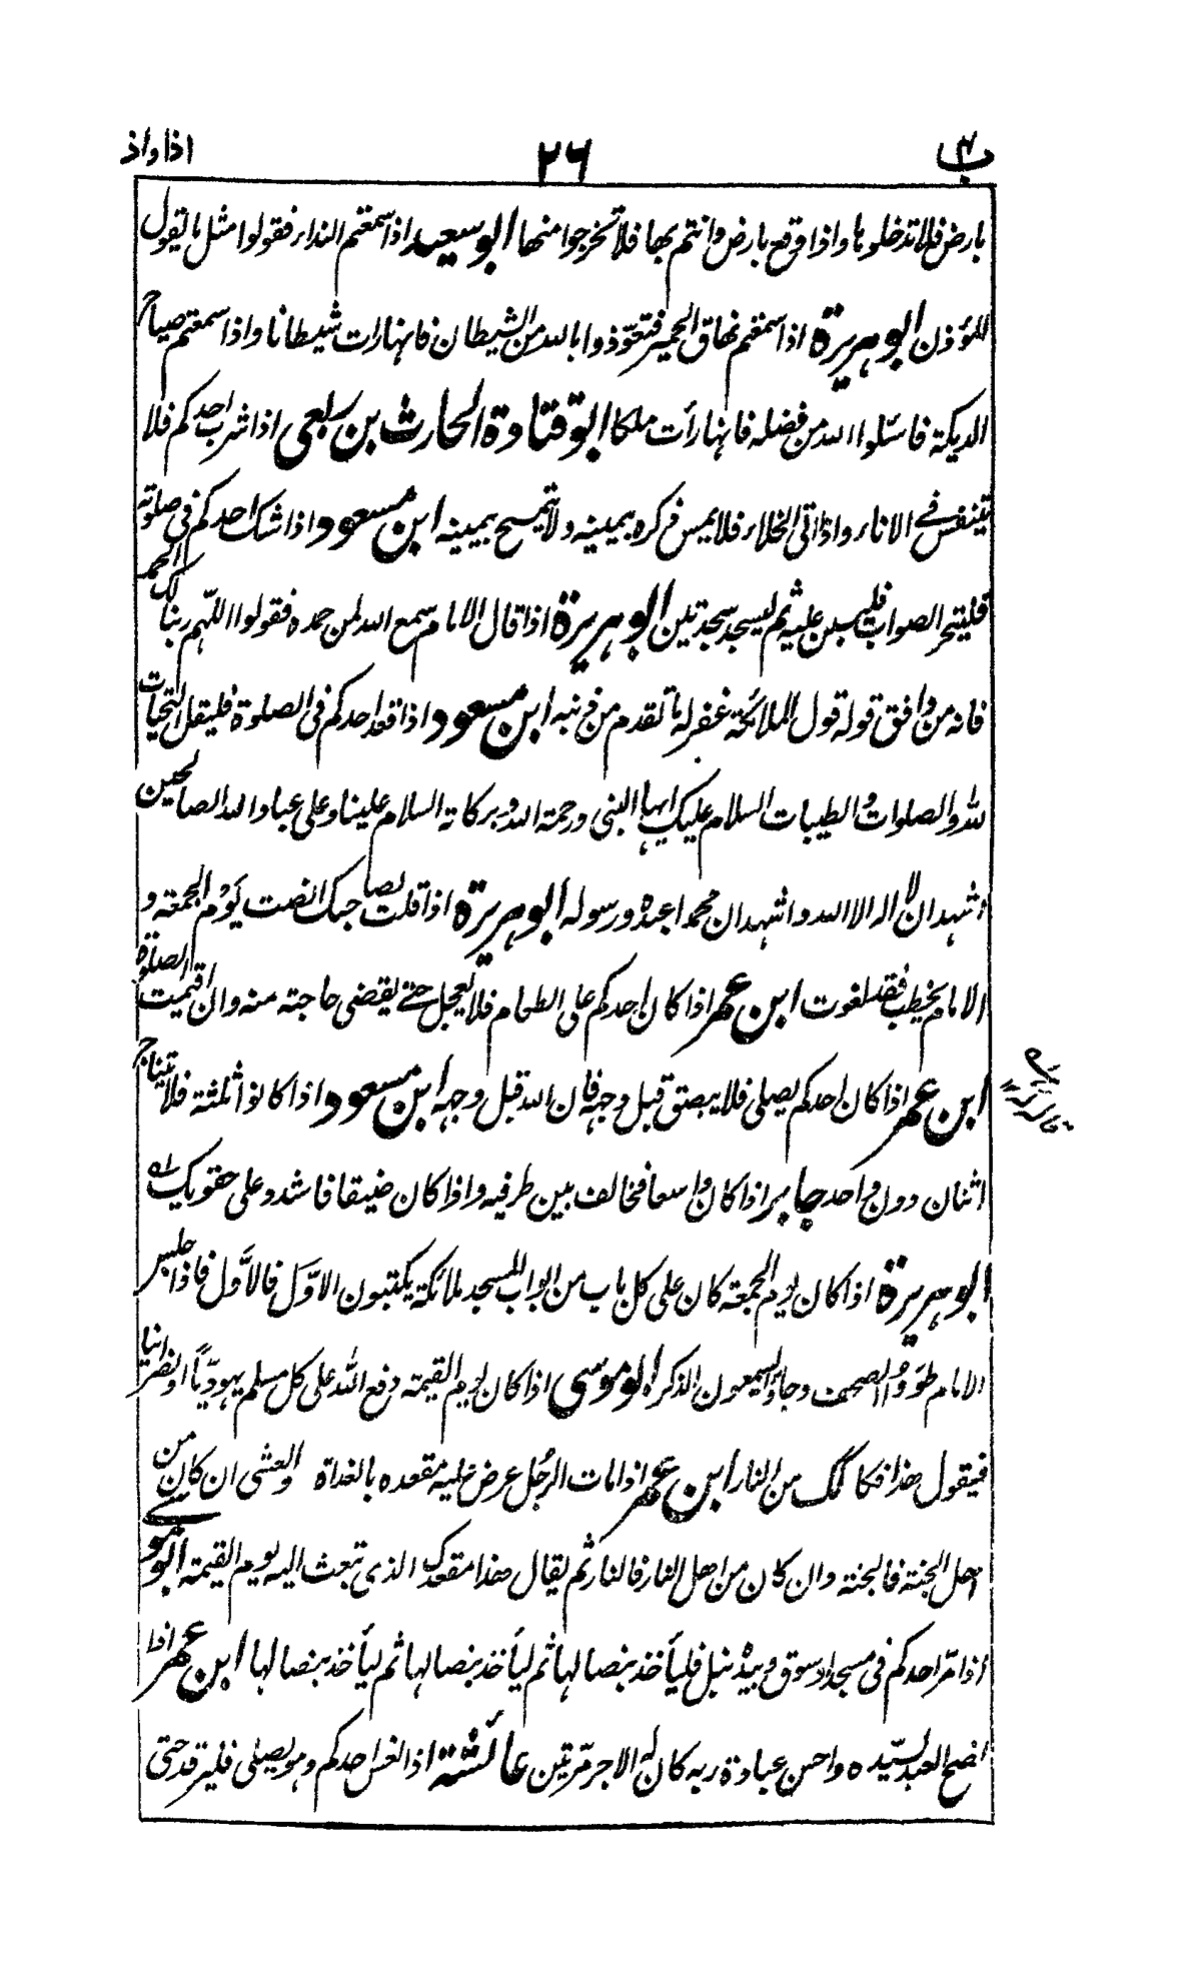 ب ٢٦ اذا واذ
بارض فلا تدخلوها واذا وقع بارض وانتم بها فلا تخرجوا منها ابو سعيد اذا سمعتم النداء فقولوا مثل ما يقول
المؤذن ابو هريرة اذا سمعتم نهاق الحمير فتعوّذوا بالله من الشيطان فانها رات شيطانا واذا سمعتم صياح
الديكة فاسئلوا الله من فضله فانها رأت ملكا ابو قتادة الحارث بن ربعي اذا شرب احدكم فلا
يتنفس في الاناء واذا اتى الخلاء فلا يمس ذكره بيمينه ولا يتمسح بيمينه ابن مسعود اذا شك احدكم في صلوته
فليتحر الصواب فليبن عليه ثم ليسجد سجدتين ابو هريرة اذا قال الامام سمع الله لمن حمده فقولوا اللّهم ربنا لك الحمد
فانه من وافق قوله قول الملائكة غفر له ما تقدم من ذنبه ابن مسعود اذا قعد احدكم في الصلوة فليقل التحيات
لله والصلوات والطيبات السلام عليك ايها النبي ورحمة الله وبركاته السلام علينا وعلى عباد الله الصالحين
اشهد ان لا اله الا الله واشهد ان محمدا عبده ورسوله ابو هريرة اذا قلت لصاحبك انصت يوم الجمعة و
الامام يخطب فقد لغوت ابن عمر اذا كان احدكم على الطعام فلا يعجل حتى يقضي حاجته منه وان اقيمت الصلوة
ابن عمر اذا كان احدكم يصلي فلا يبصق قبل وجهه فان الله قبل وجهه ابن مسعود اذا كانوا ثلثة فلا يتناج
اثنان دون واحد جابر اذا كان واسعا فخالف بين طرفيه واذا كان ضيقا فاشدد على حقويك
ابو هريرة اذا كان يوم الجمعة كان على كل باب من ابواب المسجد ملائكة يكتبون الاوّل فالاوّل فاذا جلس
الامام طووا الصحف وجاؤا يسمعون الذكر ابو موسى اذا كان يوم القيمة دفع الله على كل مسلم يهوديّا او نصرانيا
فيقول هذا فكاكك من النار ابن عمر اذا مات الرجل عرض عليه مقعده بالغداة والعشي ان كان من
اهل الجنة فالجنة وان كان من اهل النار فالنار ثم يقال هذا مقعدك الذي تبعث اليه يوم القيمة ابو موسى
اذا مرّ احدكم في مسجد او سوق وبيده نبل فليأخذ بنصالها ثم ليأخذ بنصالها ثم ليأخذ بنصالها ابن عمر اذا
نصح العبد لسيّده واحسن عبادة ربه كان له الاجر مرّتين عائشة اذا نعس احدكم وهو يصلي فليرقد حتى